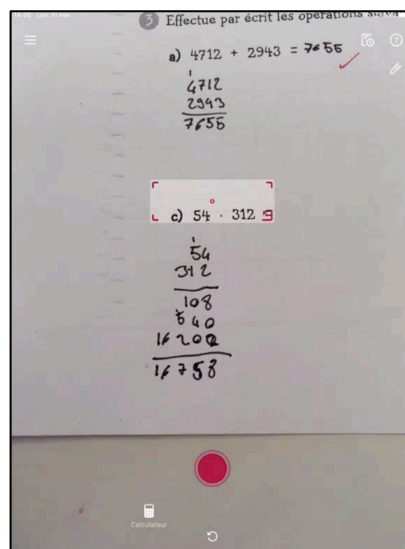 3 Effectue par écrit les opérations
a) 4712 + 2943 = 7655
1
4712
2943
7655
c) 54 · 312
1
54
312
108
540
16200
16758
Calculateur